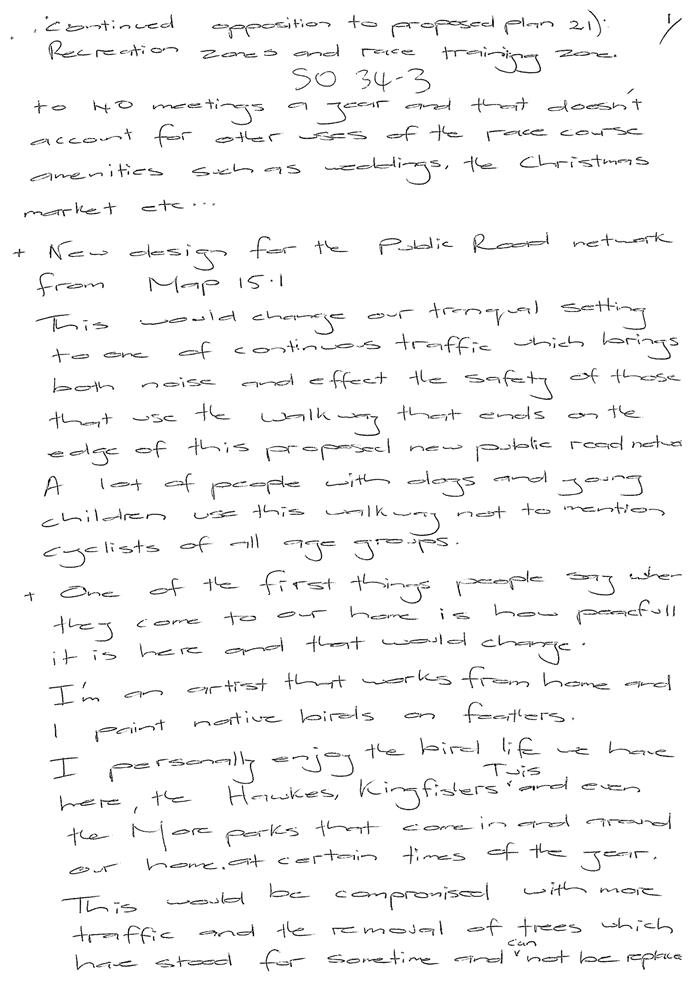 (continued opposition to proposed plan 21): 1/
Recreation zones and race training zone.
SO 34-3
to 40 meetings a year and that doesn't
account for other uses of the race course
amenities such as weddings, the Christmas
market etc...
+ New design for the Public Road network
from Map 15.1
This would change our tranqual setting
to one of continuous traffic which brings
both noise and effect the safety of those
that use the walkway that ends on the
edge of this proposed new public road netwo
A lot of people with dogs and young
children use this walkway not to mention
cyclists of all age groups.
+ One of the first things people say when
they come to our home is how peacfull
it is here and that would change.
I'm an artist that works from home and
I paint native birds on feathers.
I personally enjoy the bird life we have
here, the Hawkes, Kingfishers, Tuis and even
the More porks that come in and around
our home. at certain times of the year.
This would be compromised with more
traffic and the removal of trees which
have stood for sometime and can not be replace